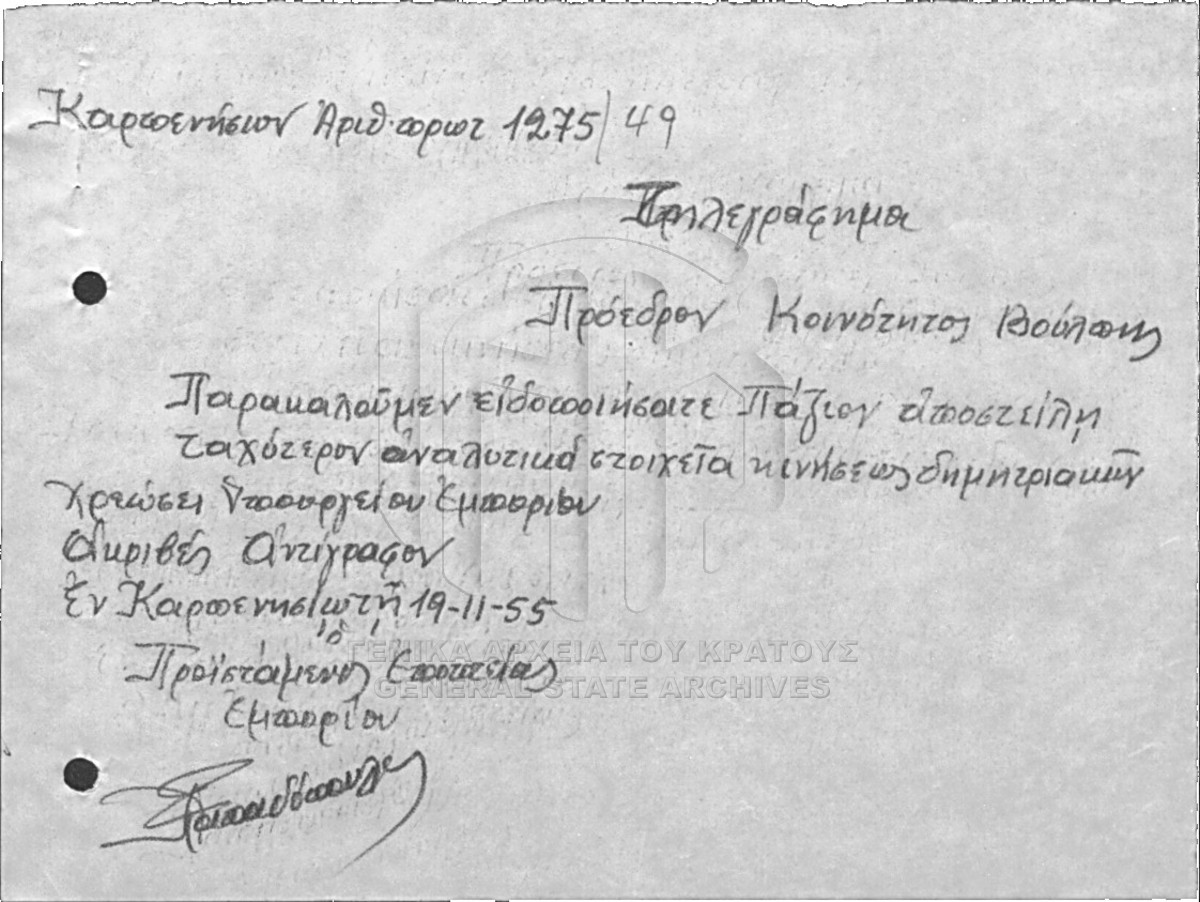 Καρπενήσιον Ἀριθ. πρωτ 1275/49
Τηλεγράφημα
Πρόεδρον Κοινότητος Βούλπης
Παρακαλοῦμεν εἰδοποιήσατε Πάζιον ἀποστείλῃ
ταχύτερον ἀναλυτικά στοιχεῖα κινήσεως δημητριακῶν
χρεώσει Ὑπουργείου Ἐμπορίου
Ἀκριβές Ἀντίγραφον
Ἐν Καρπενησίῳ τῇ 19-11-55
Ὁ
Προϊστάμενος Ἐποπτείας
Ἐμπορίου
ΓΕΝΙΚΑ ΑΡΧΕΙΑ ΤΟΥ ΚΡΑΤΟΥΣ
GENERAL STATE ARCHIVES